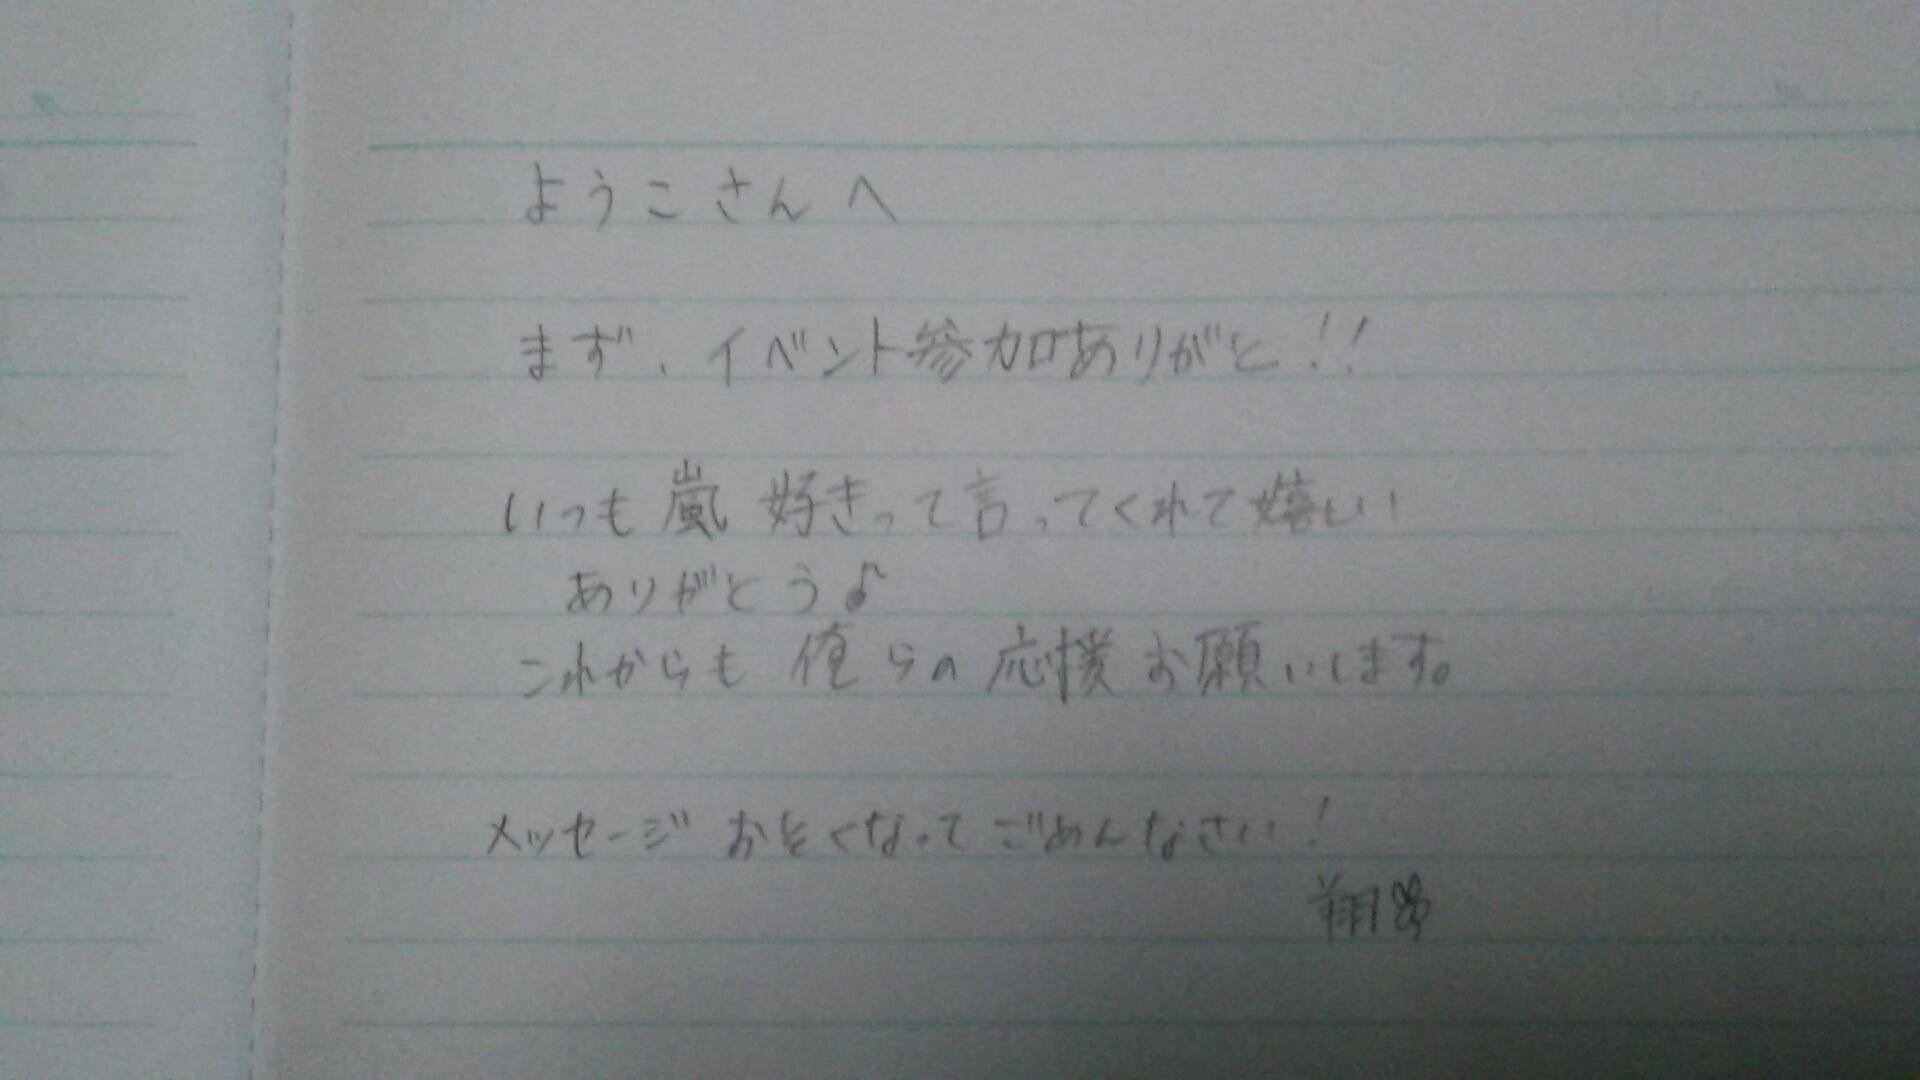 ようこさんへ
まず、イベント参加ありがと!!
いつも嵐好きって言ってくれて嬉しい
ありがとう♪
これからも俺らの応援お願いします。
メッセージおそくなってごめんなさい!
翔